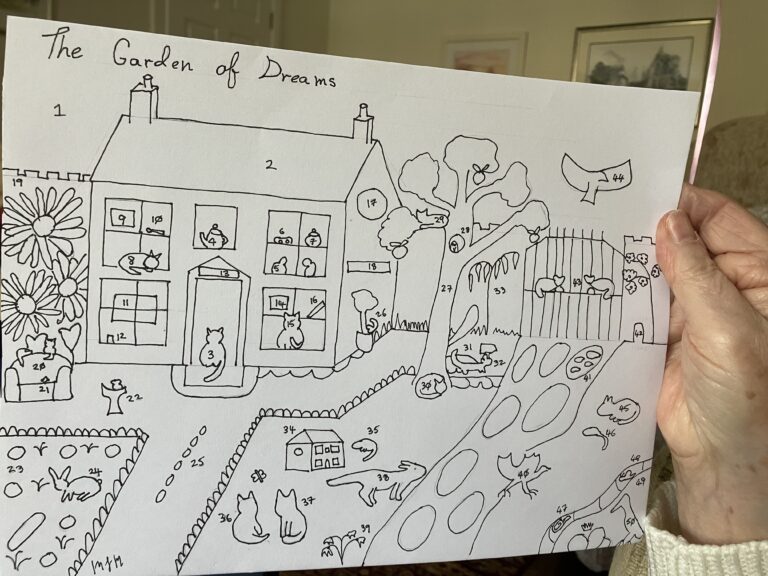 The Garden of Dreams
1
2
44
19
17
9
10
4
6
7
29
28
8
5
13
18
27
33
43
11
14
16
12
15
3
26
42
20
21
31
32
30
41
22
45
34
35
46
23
24
25
38
40
48
49
36
37
39
47
50